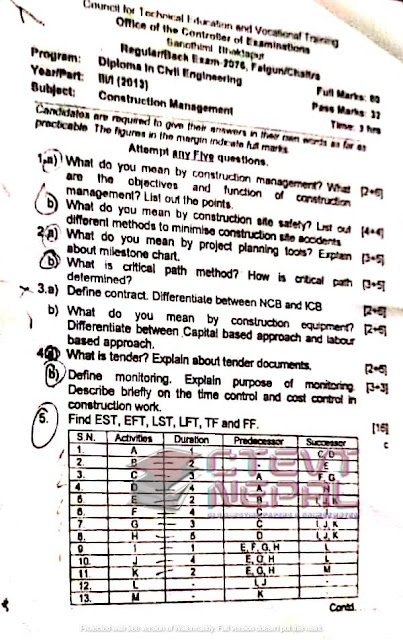 Council for Technical Education and Vocational Training
Office of the Controller of Examinations
Sanothimi Bhaktapur
Regular/Back Exam-2076, Falgun/Chaitra
Program: Diploma in Civil Engineering Full Marks: 80
Year/Part: III/I (2013) Pass Marks: 32
Subject: Construction Management Time: 3 hrs
Candidates are required to give their answers in their own words as far as
practicable. The figures in the margin indicate full marks.
Attempt any Five questions.
1. a) What do you mean by construction management? What [2+6]
are the objectives and function of construction
management? List out the points.
b) What do you mean by construction site safety? List out [4+4]
different methods to minimise construction site accidents
2. a) What do you mean by project planning tools? Explain [3+5]
about milestone chart.
b) What is critical path method? How is critical path [3+5]
determined?
3.a) Define contract. Differentiate between NCB and ICB [2+6]
b) What do you mean by construction equipment? [2+6]
Differentiate between Capital based approach and labour
based approach.
4. a) What is tender? Explain about tender documents. [2+6]
b) Define monitoring. Explain purpose of monitoring. [3+3]
Describe briefly on the time control and cost control in
construction work.
5. Find EST, EFT, LST, LFT, TF and FF. [16]
S.N. Activities Duration Predecessor Successor
1. A 1 - C, D
2. B 2 - E
3. C 3 A F, G
4. D 4 A
5. E 2 B I, K
6. F 4 C
7. G 3 C I, J, K
8. H 5 D I, J, K
9 I 1 E, F, G, H L
10. J 4 E, G, H L
11. K 2 E, G, H M
12. L - I, J -
13. M - K
Contd...
CTEVT
NEPAL